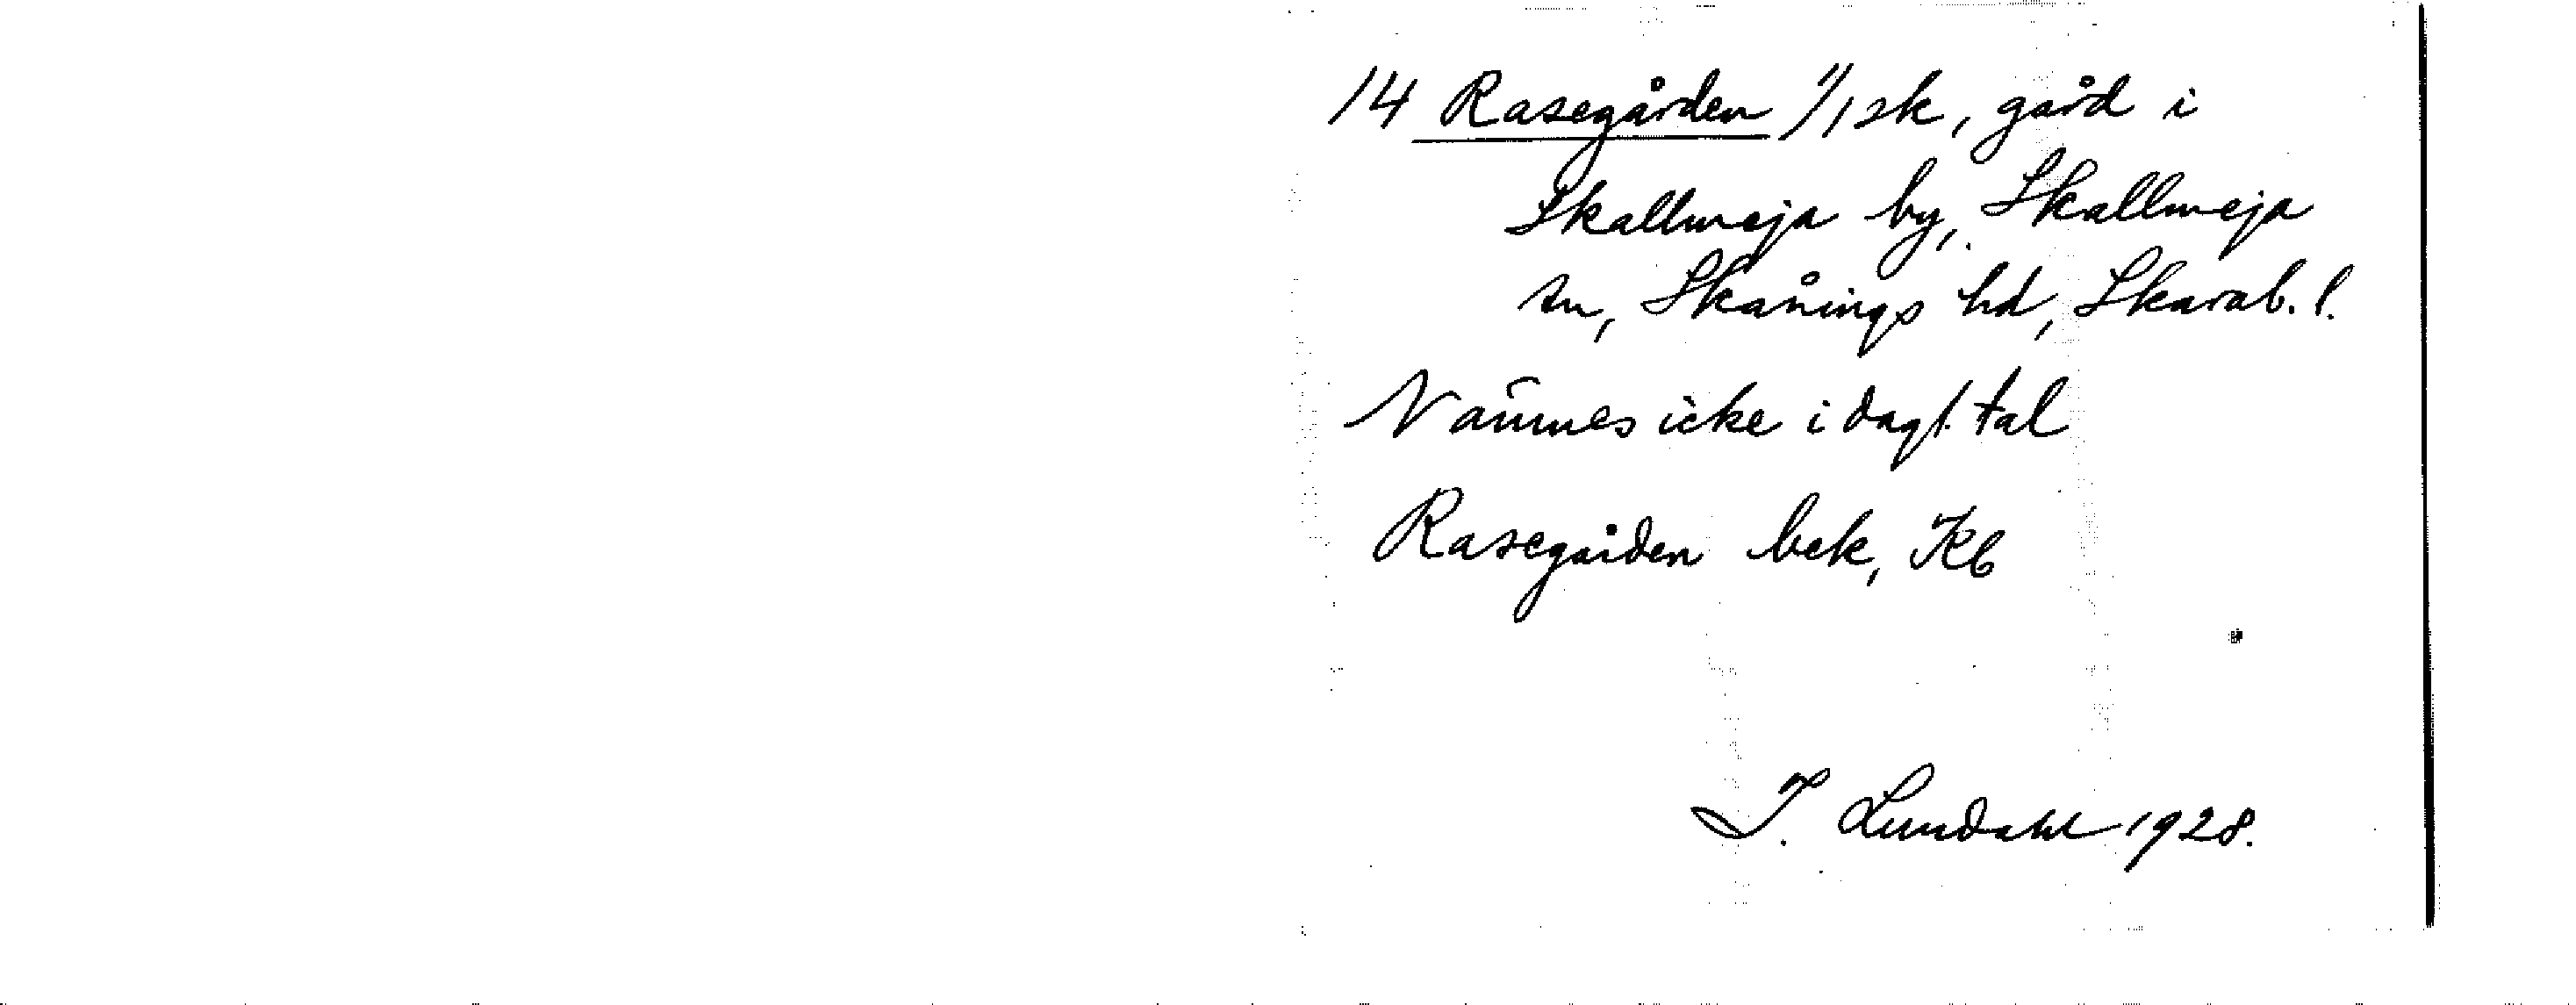 14 Rasegården 1/1 sk, gård i
Skallmeja by, Skallmeja
sn, Skånings hd, Skarab. l.
Nämnes icke i dagl. tal
Rasegården bek, Kb
I. Lundahl 1928.